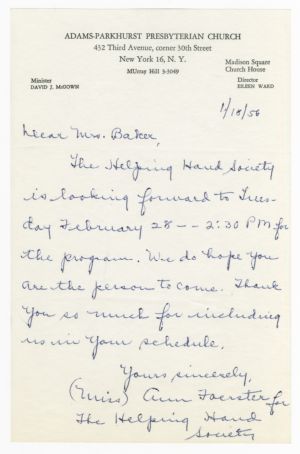 ADAMS-PARKHURST PRESBYTERIAN CHURCH
432 Third Avenue, corner 30th Street
New York 16, N. Y.
MUrray Hill 3-3049
Madison Square
Church House
Minister
DAVID J. McGOWN
Director
EILEEN WARD
1/18/56
Dear Mrs. Baker,
The Helping Hand Society
is looking forward to Tues-
day February 28 -- 2:30 P.M. for
the program. We do hope you
are the person to come. Thank
you so much for including
us in your schedule.
Yours sincerely,
(Miss) Ann Foerster for
The Helping Hand
Society